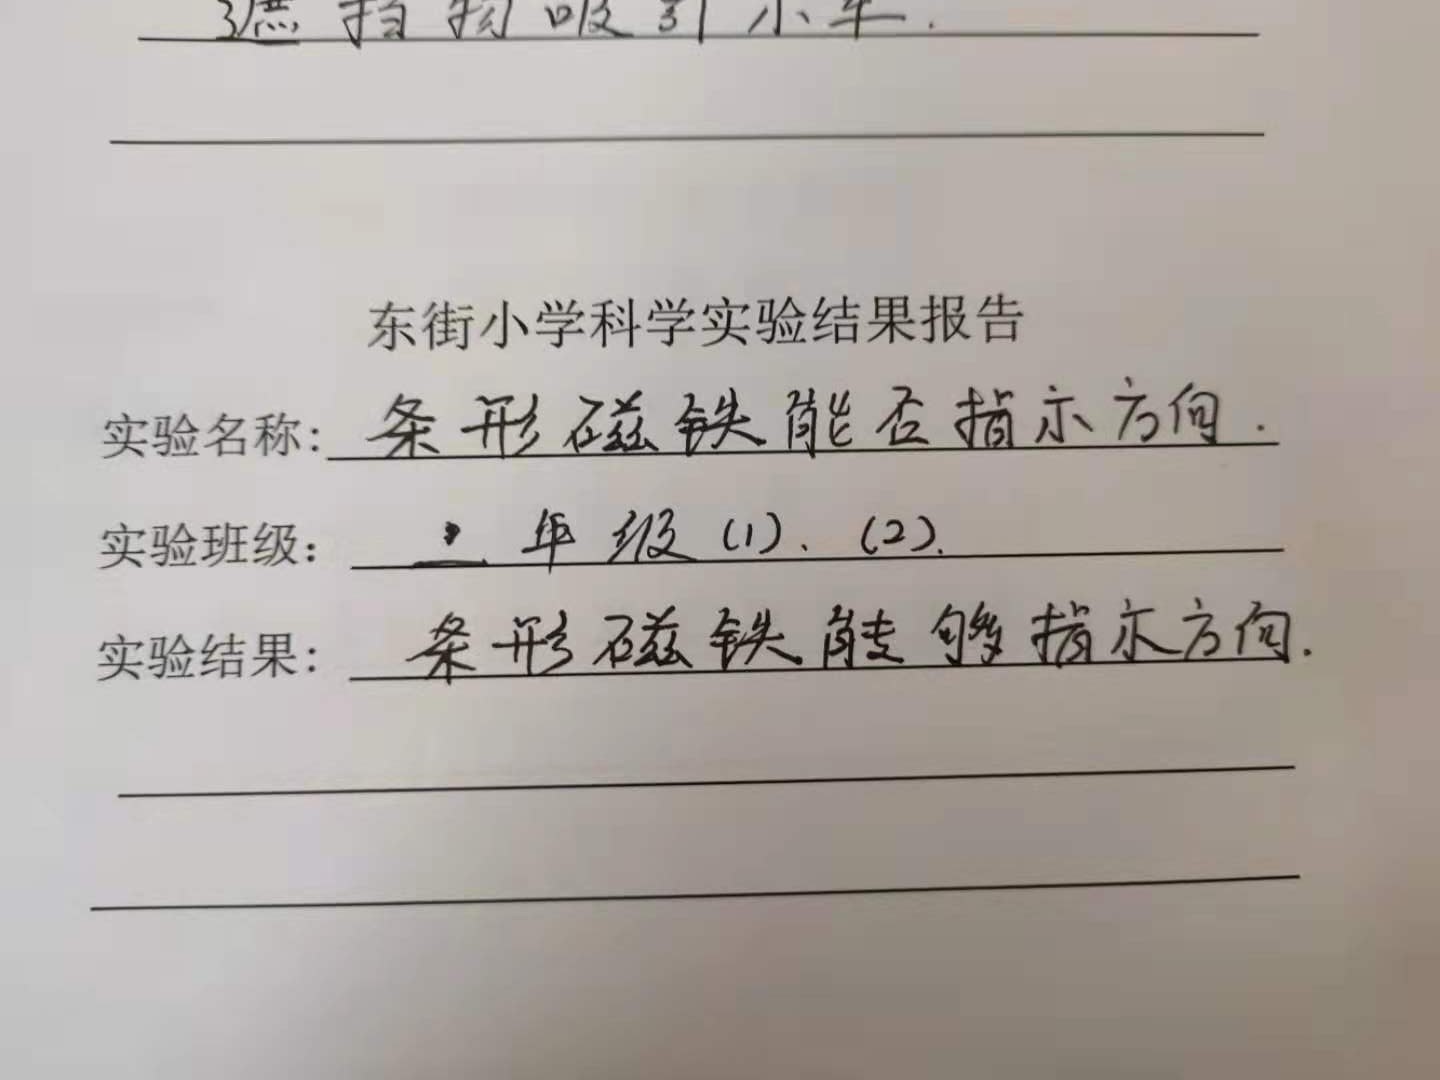 遮挡物吸引小车.
东街小学科学实验结果报告
实验名称: 条形磁铁能否指示方向.
实验班级: 二年级(1)、(2).
实验结果: 条形磁铁能够指示方向.